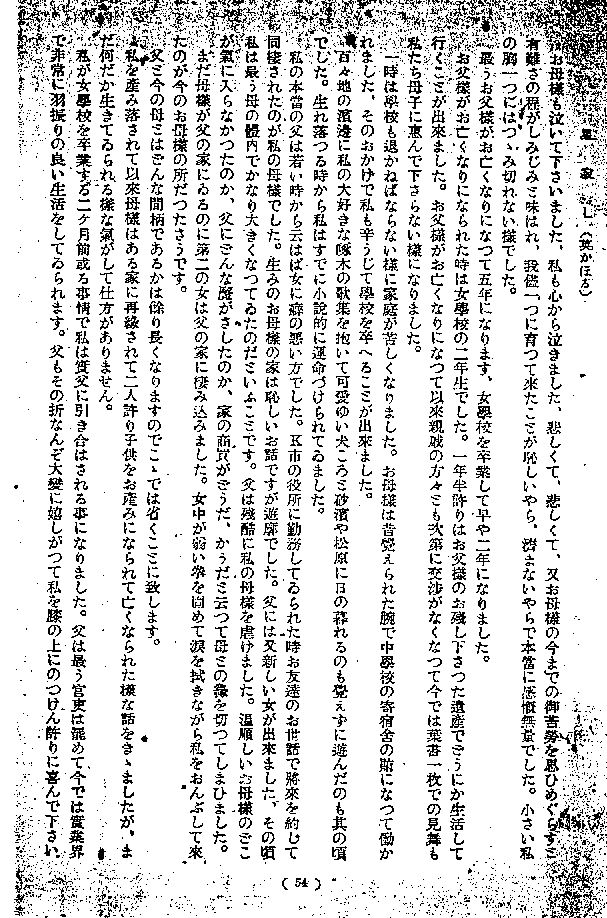 寂し（英かほる）
お母樣も泣いて下さいました、私も心から泣きました、悲しくて、悲しくて、又お母樣の今までの御苦勞を思ひめぐらすミ
有難さの程がしみじみミ味はれ、我儘一つに育つて來たこミが恥しいやら、濟まないやらで本當に感慨無量でした。小さい私
の胸一つにはつゝみ切れない樣でした。
最うお父樣がお亡くなりになつて五年になります、女學校を卒業して早や二年になりました。
お父樣がお亡くなりになられた時は女學校の二年生でした。一年半許りはお父樣のお殘し下さつた遺產でどうにか生活して
行くこミが出來ました。お父樣がお亡くなりになつて以來親戚の方々ミも次第に交渉がなくなつて今では葉書一枚での見舞も
私たち母子に惠んで下さらない樣になりました。
一時は學校も退かねばならない樣に家庭が苦しくなりました。お母樣は昔覺えられた腕で中學校の寄宿舍の賄になつて働か
れました、そのおかげで私も辛うじて學校を卒へるこミが出來ました。
百々地の濱邊に私の大好きな啄木の歌集を抱いて可愛ゆい犬ころミ砂濱や松原に日の暮れるのも覺えずに遊んだのも其の頃
でした。生れ落つる時から私はすでに小說的に運命づけられてゐました。
私の本當の父は若い時から云はば女に癖の惡い方でした。K市の役所に勤務してゐられた時お友達のお世話で將來を約して
同棲されたのが私の母樣でした。生みのお母樣の家は恥しいお話ですが遊廓でした。父には又新しい女が出來ました、その頃
私は最う母の體內でかなり大きくなつてゐたのだミいふこミです。父は殘酷に私の母樣を虐けました。溫順しいお母樣のどこ
が氣に入らなかつたのか、父にどんな魔がさしたのか、家の商賣がどうだ、かうだミ云つて母ミの緣を切つてしまひました。
まだ母樣が父の家にゐるのに第二の女は父の家に棲み込みました。女中が弱い拳を固めて淚を拭きながら私をおんぶして來
たのが今のお母樣の所だつたさうです。
父ミ今の母ミはどんな間柄であるかは餘り長くなりますのでこゝでは省くこミに致します。
私を產み落されて以來母樣はある家に再緣されて二人許り子供をお產みになられて亡くなられた樣な話をきゝましたが、ま
だ何だか生きてゐられる樣な氣がして仕方がありません。
私が女學校を卒業する二ケ月前或る事情で私は實父に引き合はされる事になりました。父は最う官吏は罷めて今では實業界
で非常に羽振りの良い生活をしてゐられます。父もその折なんぞ大變に嬉しがつて私を膝の上にのつけん許りに喜んで下さい
（54）